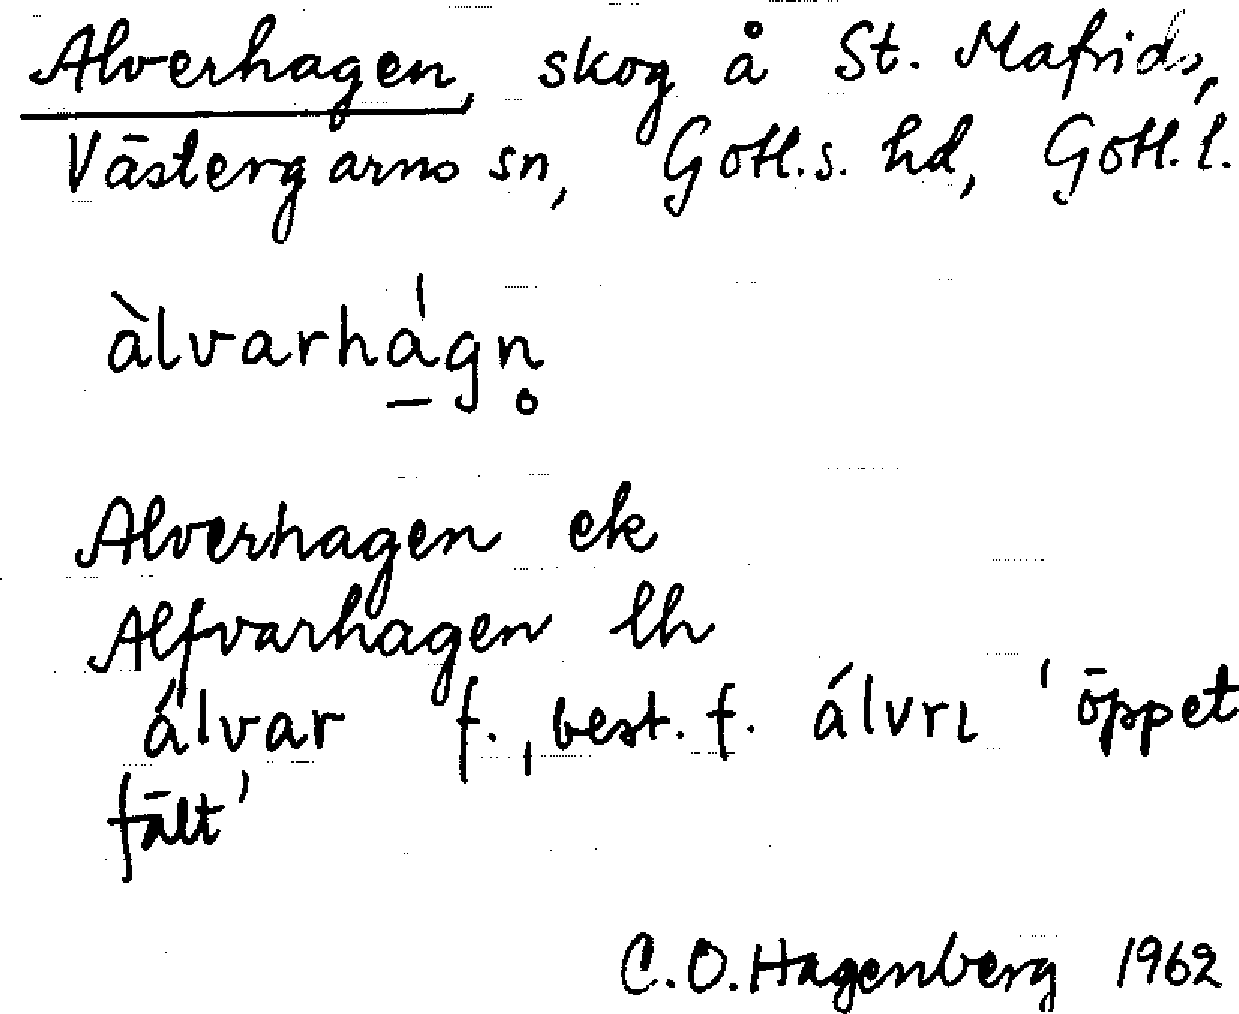 Alverhagen, skog å St. Mafrids,
Västergarns sn, Gotl.s. hd, Gotl. l.
àlvarha̱ˈgn̥
Alverhagen ek
Alfvarhagen lh
álvar f., best. f. álvrɩ 'öppet
fält'
C.O. Hagenberg 1962